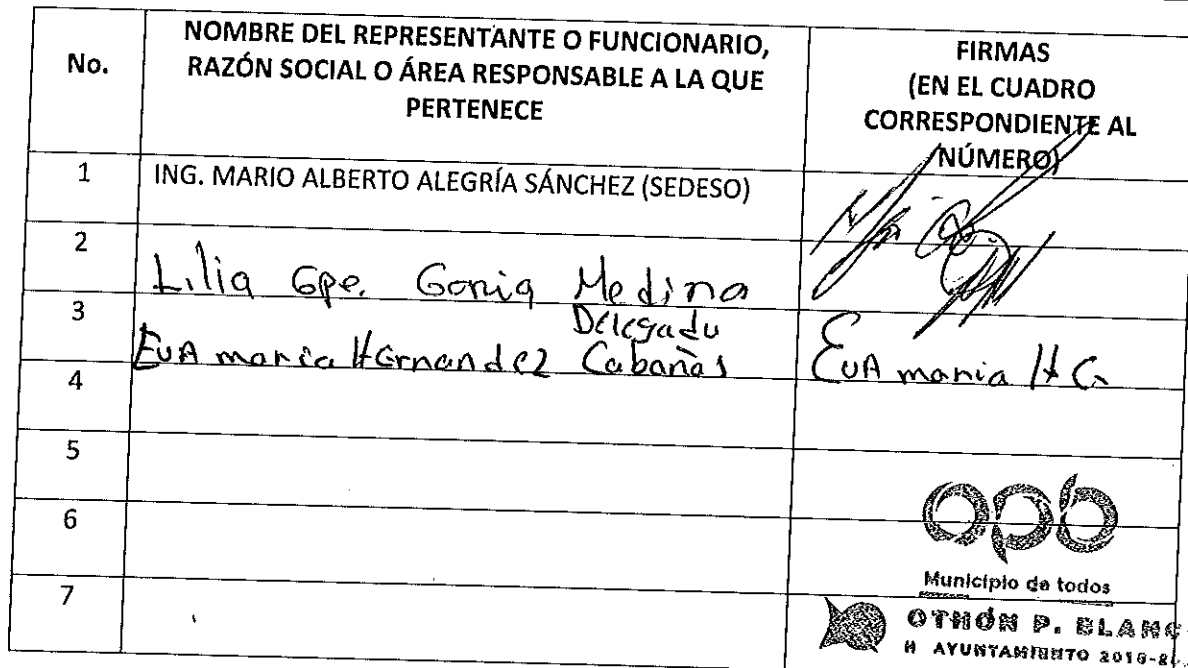 No.
NOMBRE DEL REPRESENTANTE O FUNCIONARIO,
RAZÓN SOCIAL O ÁREA RESPONSABLE A LA QUE
PERTENECE
FIRMAS
(EN EL CUADRO
CORRESPONDIENTE AL
NÚMERO)
1 ING. MARIO ALBERTO ALEGRÍA SÁNCHEZ (SEDESO)
2 Lilia Gpe. Medina
3 Delegada
EvA maria Hernandez Cabañas EvA maria H C
4
5
6
7
opb
Municipio de todos
OTHÓN P. BLANC
H AYUNTAMIENTO